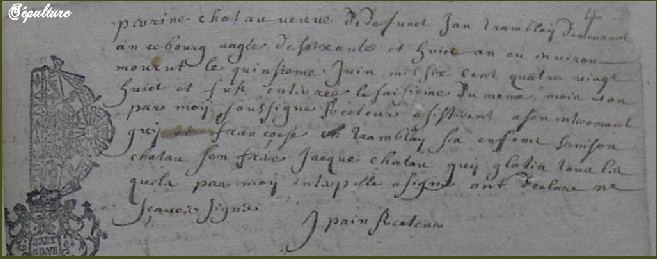 Sépulture
4
perrine chatau veuve de defunct Jan tramblay demeurant
au bourg aagée de soixante et huict an ou environ
mourut le quinsieme Juin mil six cent quatre vingt
huict et fust enterrée le saisieme du meme mois et an
par moy soussigne Recteur asistoient a son enteremant
guy et francoise tramblay sea enfent samson
chatau son frere Jacque chatau guy glotin tous les
quels par moy interpelle a signe ont declare ne
scavoir signer
J pain Recteur